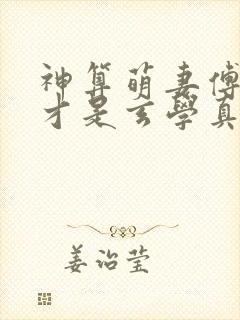 神算萌妻傅
才是玄學真
姜治莹